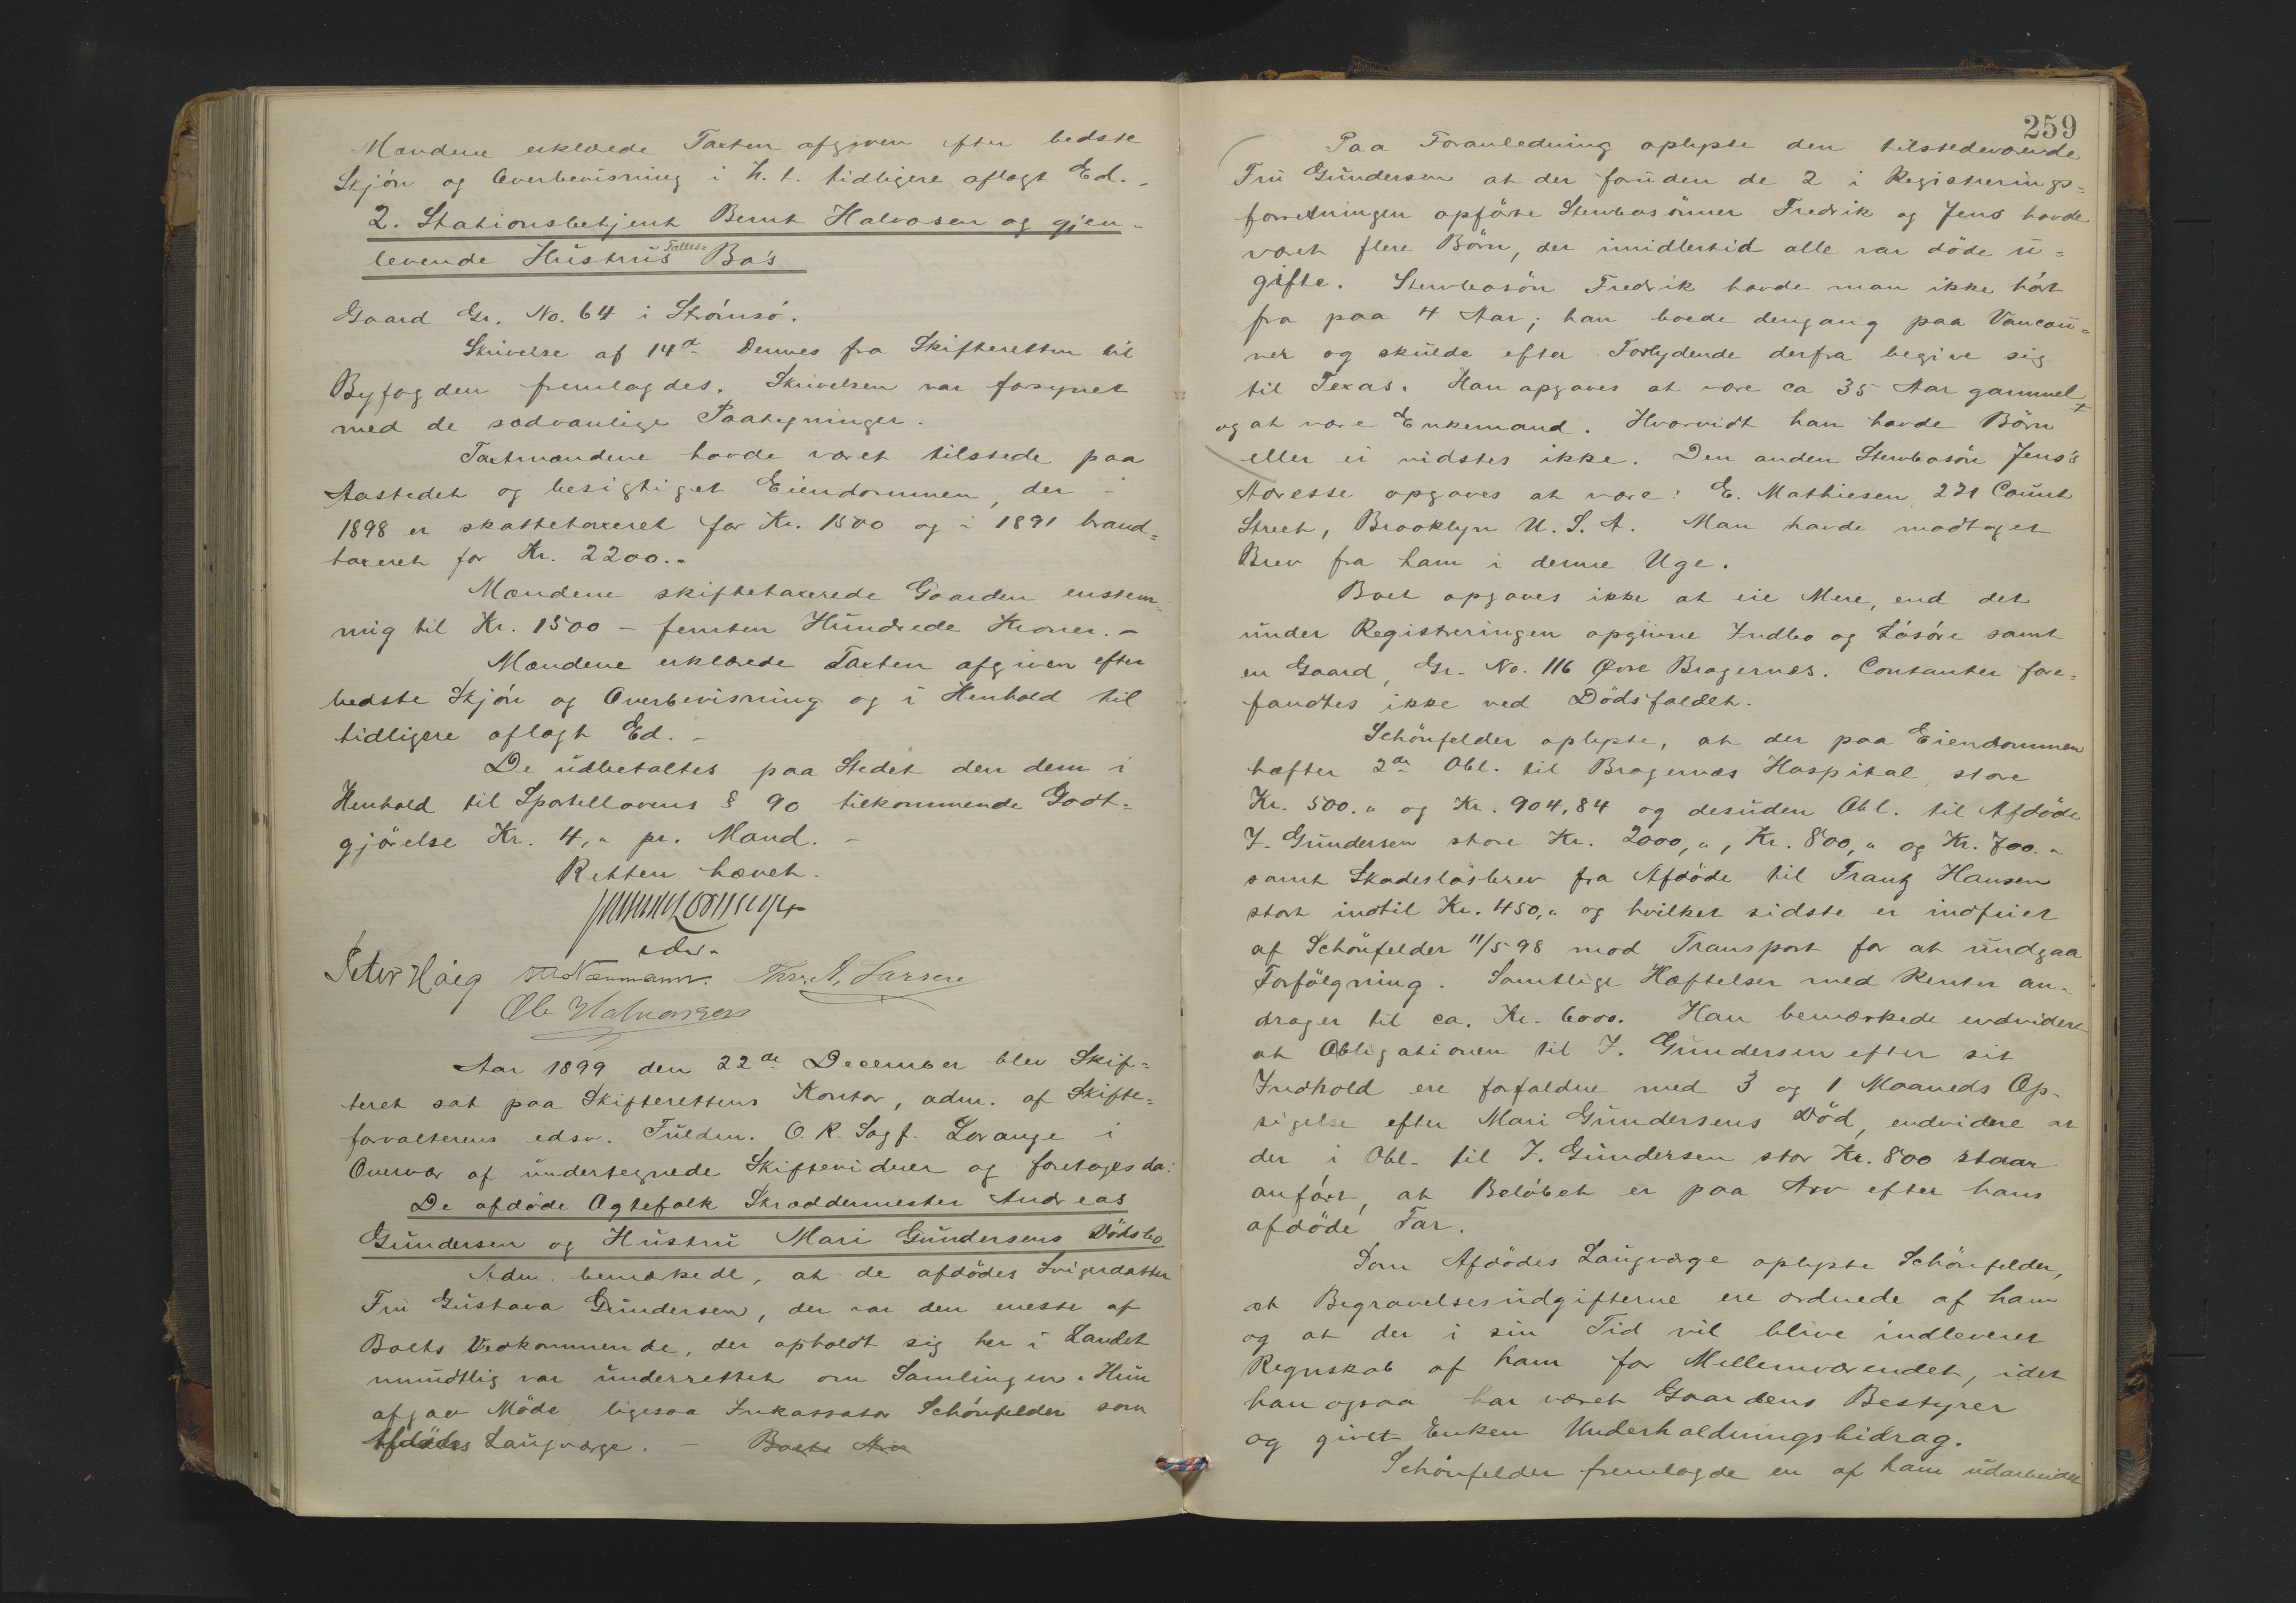 Mændene erklærede Taxten afgiven efter bedste
Skjön og Overbevisning i h. t. tidligere aflagt Ed. -
2. Stationsbetjent Bernt Halvorsen og gjen-
levende Hustrus Fælles= Bo's
Gaard Gr. No. 64 i Strömsö.
Skrivelse af 14de Dennes fra Skifteretten til
Byfogden fremlagdes. Skrivelsen var forsynet
med de sædvanlige Paategninger.
Taxtmændene havde været tilstede paa
Aastedet og besigtiget Eiendommen, der i
1898 er skattetaxeret for Kr. 1500 og i 1891 brand=
taxeret for Kr. 2200.-
Mændene skiftetaxerede Gaarden enstem-
mig til Kr. 1500 - femten Hundrede Kroner. -
Mændene erklærede Taxten afgiven efter
bedste Skjön og Overbevisning og i Henhold til
tidligere aflagt Ed. -
De udbetaltes paa Stedet den dem i
Henhold til Sportellovens § 90 tilkommende Godt=
gjörelse Kr. 4,- pr. Mand. -
Retten hævet.
edsv.
Peter Höeg Neumann. Thrv. A. Larsen
Ole Halvorsen
Aar 1899 den 22de December blev Skif=
teret sat paa Skifterettens Kontor, adm. af Skifte=
forvalterens edsv. Fuldm. O. R. Sagf. Lorange i
Overvær af undertegnede Skiftevidner og foretoges da:
De afdöde Ægtefolk Skræddermester Andreas
Gundersen og Hustru Mari Gundersens Dödsbo
Adm. bemærkede, at de afdödes Svigerdatter
Fru Gustava Gundersen, der var den eneste af
Boets Vedkommende, der opholdt sig her i Landet
mundtlig var underrettet om Samlingen. Hun
afgav Möde ligesaa Inkassator Schönfelder som
Afdödes Laugværge. - Boets
259
Paa Foranledning oplyste den tilstedeværende
Fru Gundersen at der foruden de 2 i Registrerings=
forretningen opförte Stervbosönner Fredrik og Jens havde
været flere Börn, der imidlertid alle var döde u=
gifte. Stervbosön Fredrik havde man ikke hört
fra paa 4 Aar; han boede dengang paa Vancou=
ver og skulde efter Forlydende derfra begive sig
til Texas. Han opgaves at være ca 35 Aar gammel
og at være Enkemand. Hvorvidt han havde Börn
eller ei vidstes ikke. Den anden Stervbosön Jens's
Adresse opgaves at være: E. Mathiesen 221 Count
Street, Brooklyn U. S. A. Man havde modtaget
Brev fra ham i denne Uge.
Boet opgaves ikke at eie Mere, end det
under Registreringen opgivne Indbo og Lösöre samt
en Gaard, Gr. No. 116 Øvre Bragernæs. Contanter fore=
fandtes ikke ved Dödsfaldet.
Schönfelder oplyste, at der paa Eiendommen
hæfter 2de Obl. til Bragernæs Hospital, store
Kr. 500.- og Kr. 904,84 og desuden Obl. til Afdöde
J. Gundersen store Kr. 2000,-, Kr. 800,- og Kr. 700.-
samt Skadeslösbrev fra Afdöde til Frantz Hansen
stort indtil Kr. 450,- og hvilket sidste er indfriet
af Schönfelder 11/5 98 mod Transport for at undgaa
Forfölgning. Samtlige Hæftelser med Renter an-
drager til ca. Kr. 6000. Han bemærkede endvidere
at Obligationen til J. Gundersen efter sit
Indhold ere forfaldne med 3 og 1 Maaneds Op-
sigelse efter Mari Gundersens Död, endvidere at
der i Obl. til J. Gundersen stor Kr. 800 staar
anfört, at Belöbet er paa Arv efter hans
afdöde Far.
Som Afdödes Laugværge oplyste Schönfelder,
at Begravelsesudgifterne ere ordnede af ham
og at der i sin Tid vil blive indleveret
Regnskab af ham for Mellemværendet, idet
han ogsaa har været Gaardens Bestyrer
og givet Enken Underholdningsbidrag.
Schönfelder fremlagde en af ham udarbeidet